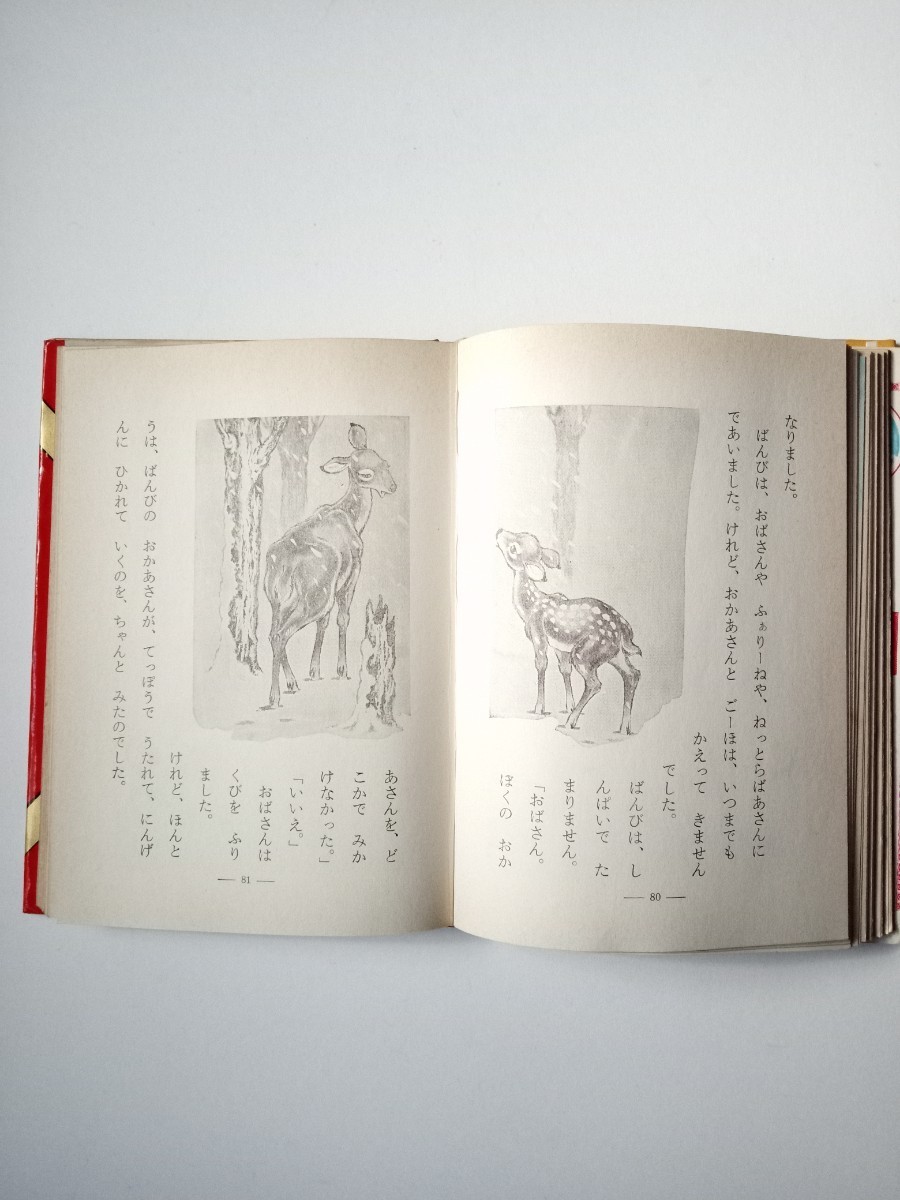 なりました。
ばんびは、おばさんや　ふぁりーねや、ねっとらばあさんに
であいました。けれど、おかあさんと　ごーほは、いつまでも
かえって　きません
でした。
ばんびは、し
んぱいで　た
まりません。
「おばさん。
ぼくの　おか
80
あさんを、ど
こかで　みか
けなかった。」
「いいえ。」
おばさんは
くびを　ふり
ました。
けれど、ほんと
うは、ばんびの　おかあさんが、てっぽうで　うたれて、にんげ
んに　ひかれて　いくのを、ちゃんと　みたのでした。
81